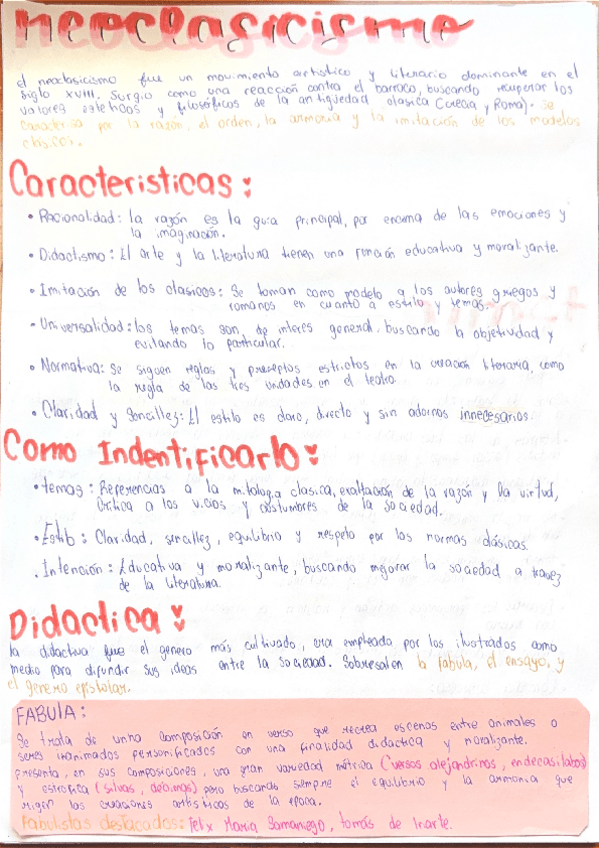 neoclasicismo
el neoclasicismo fue un movimiento artistico y literario dominante en el
siglo XVIII. Surgio como una reacción contra el barroco, buscando recuperar los
valores esteticos y filosóficos de la antigüedad clasica (Grecia y Roma). Se
caracteriza por la razón, el orden, la armonia y la imitación de los modelos
clásicos.
Caracteristicas:
• Racionalidad: la razón es la guia principal, por encima de las emociones y
la imaginación.
• Didactismo: El arte y la literatura tienen una función educativa y moralizante.
• Imitación de los clasicos: Se toman como modelo a los autores griegos y
romanos en cuanto a estilo y temas.
• Universalidad: los temas son de interes general, buscando la objetividad y
evitando lo particular.
• Normativa: Se siguen reglas y preceptos estrictos en la creación literaria, como
la regla de las tres unidades en el teatro.
• Claridad y Sencillez: El estilo es claro, directo y sin adornos innecesarios.
Como Indentificarlo:
• temas: Referencias a la mitologia clásica, exaltación de la razón y la virtud,
Critica a los vicios y costumbres de la sociedad.
• Estilo: Claridad, sencillez, equilibrio y respeto por las normas clásicas.
• Intención: Educativa y moralizante, buscando mejorar la sociedad a travez
de la literatura.
Didactica:
la didactica fue el genero más cultivado, era empleada por los ilustrados como
medio para difundir sus ideas entre la sociedad. Sobresalen la fabula, el ensayo, y
el genero epistolar.
FABULA:
Se trata de unna composición en verso que recrea escenas entre animales o
seres inanimados personificados con una finalidad didactica y moralizante.
presenta, en sus composiciones, una gran variedad métrica (versos alejandrinos, endecasilabos)
y estrofica (silvas, decimas) pero buscando siempre el equilibrio y la armonia que
rigen las creaciones artisticas de la epoca.
Fabulistas destacados: Felix Maria Samaniego, tomás de Iriarte.